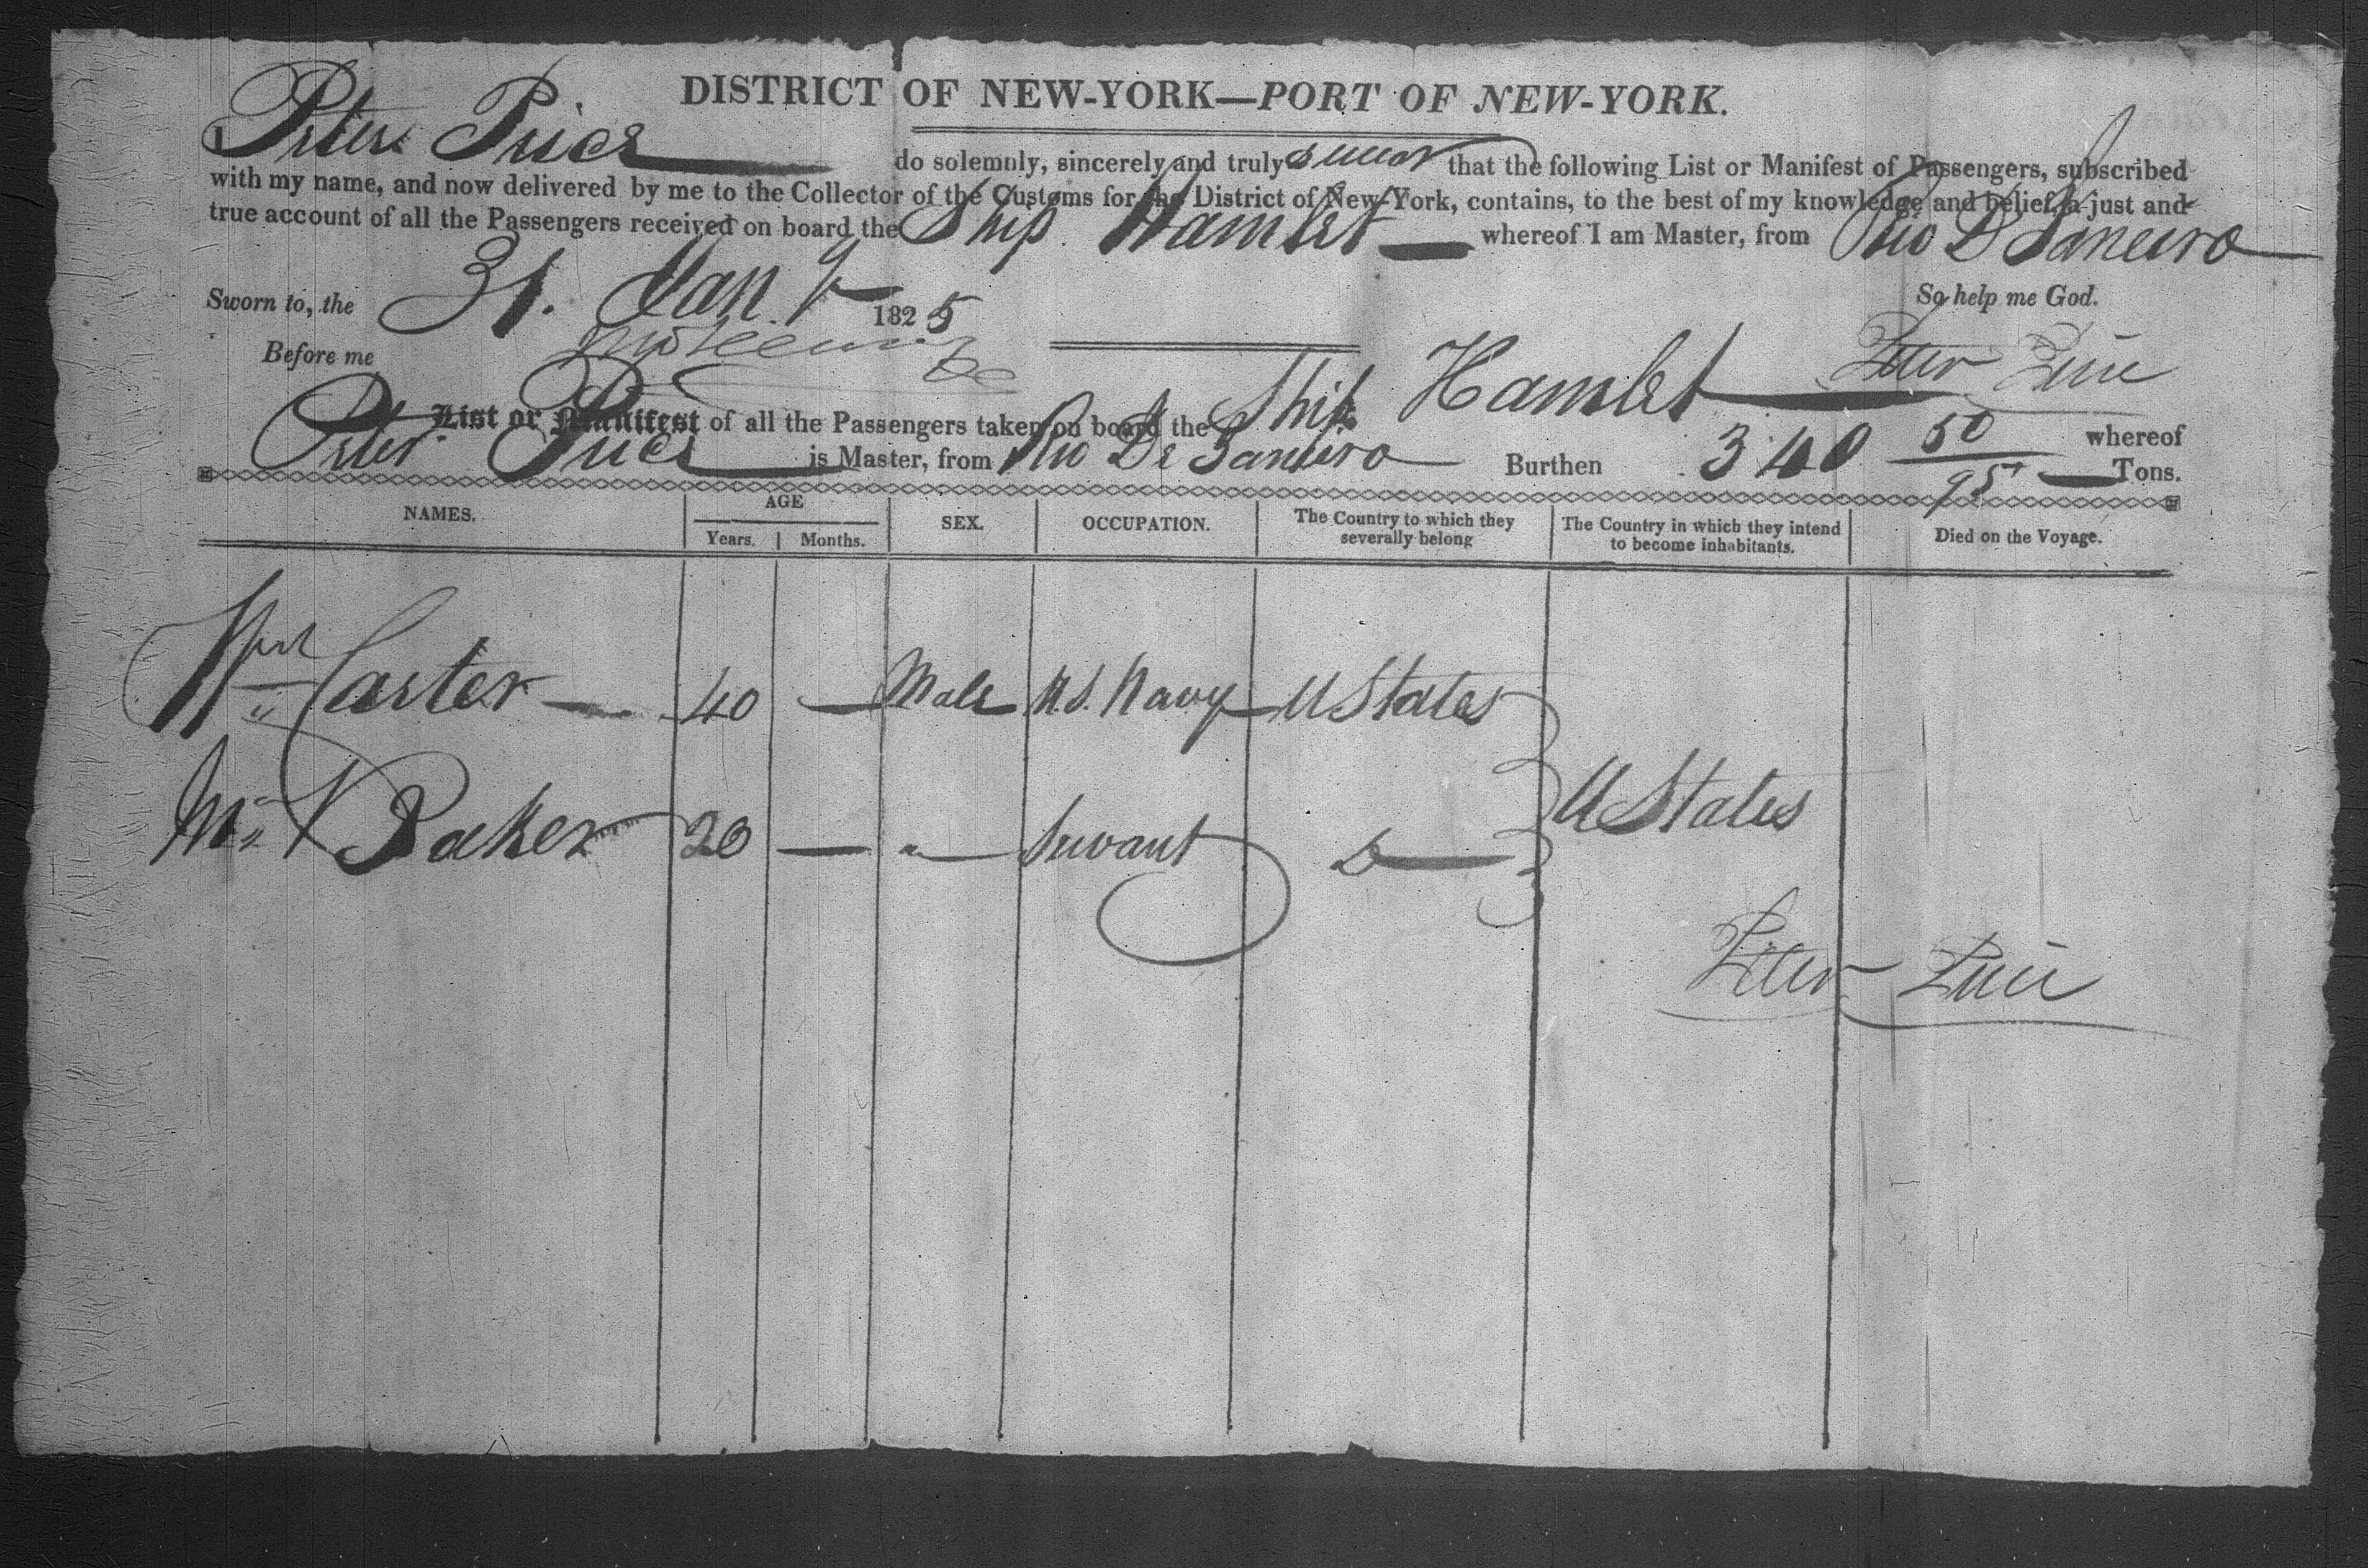 DISTRICT OF NEW-YORK—PORT OF NEW-YORK.
I Peter Price do solemnly, sincerely and truly swear that the following List or Manifest of Passengers, subscribed
with my name, and now delivered by me to the Collector of the Customs for the District of New-York, contains, to the best of my knowledge and belief, a just and
true account of all the Passengers received on board the Ship Hamlet whereof I am Master, from Rio D Janeiro
Sworn to, the 31. Jany 1825 So help me God.
Before me Peter Price
List or Manifest of all the Passengers taken on board the Ship Hamlet whereof
Peter Price is Master, from Rio De Janeiro Burthen 340 50/95 Tons.
NAMES. AGE Years. Months. SEX. OCCUPATION. The Country to which they severally belong The Country in which they intend to become inhabitants. Died on the Voyage.
Wm Carter — 40 — Male U.S. Navy U States
U States
Baker 20 — " Servant Do
Peter Price